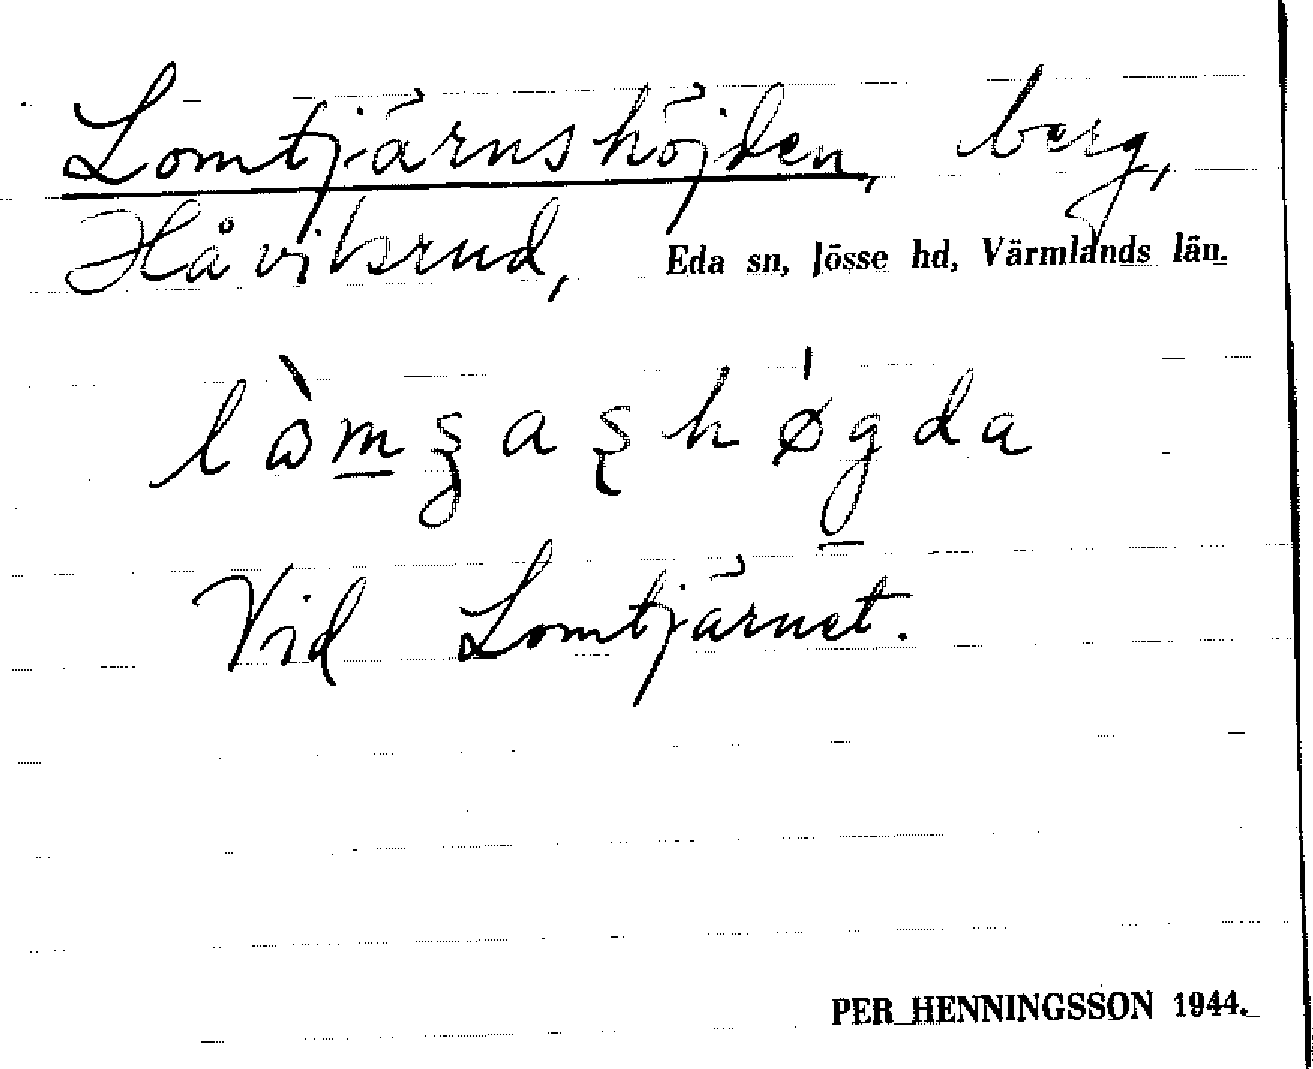 Lomtjärnshöjden, berg,
Håvilsrud, Eda sn, Jösse hd, Värmlands län.
Vid Lomtjärnet.
PER HENNINGSSON 1944.